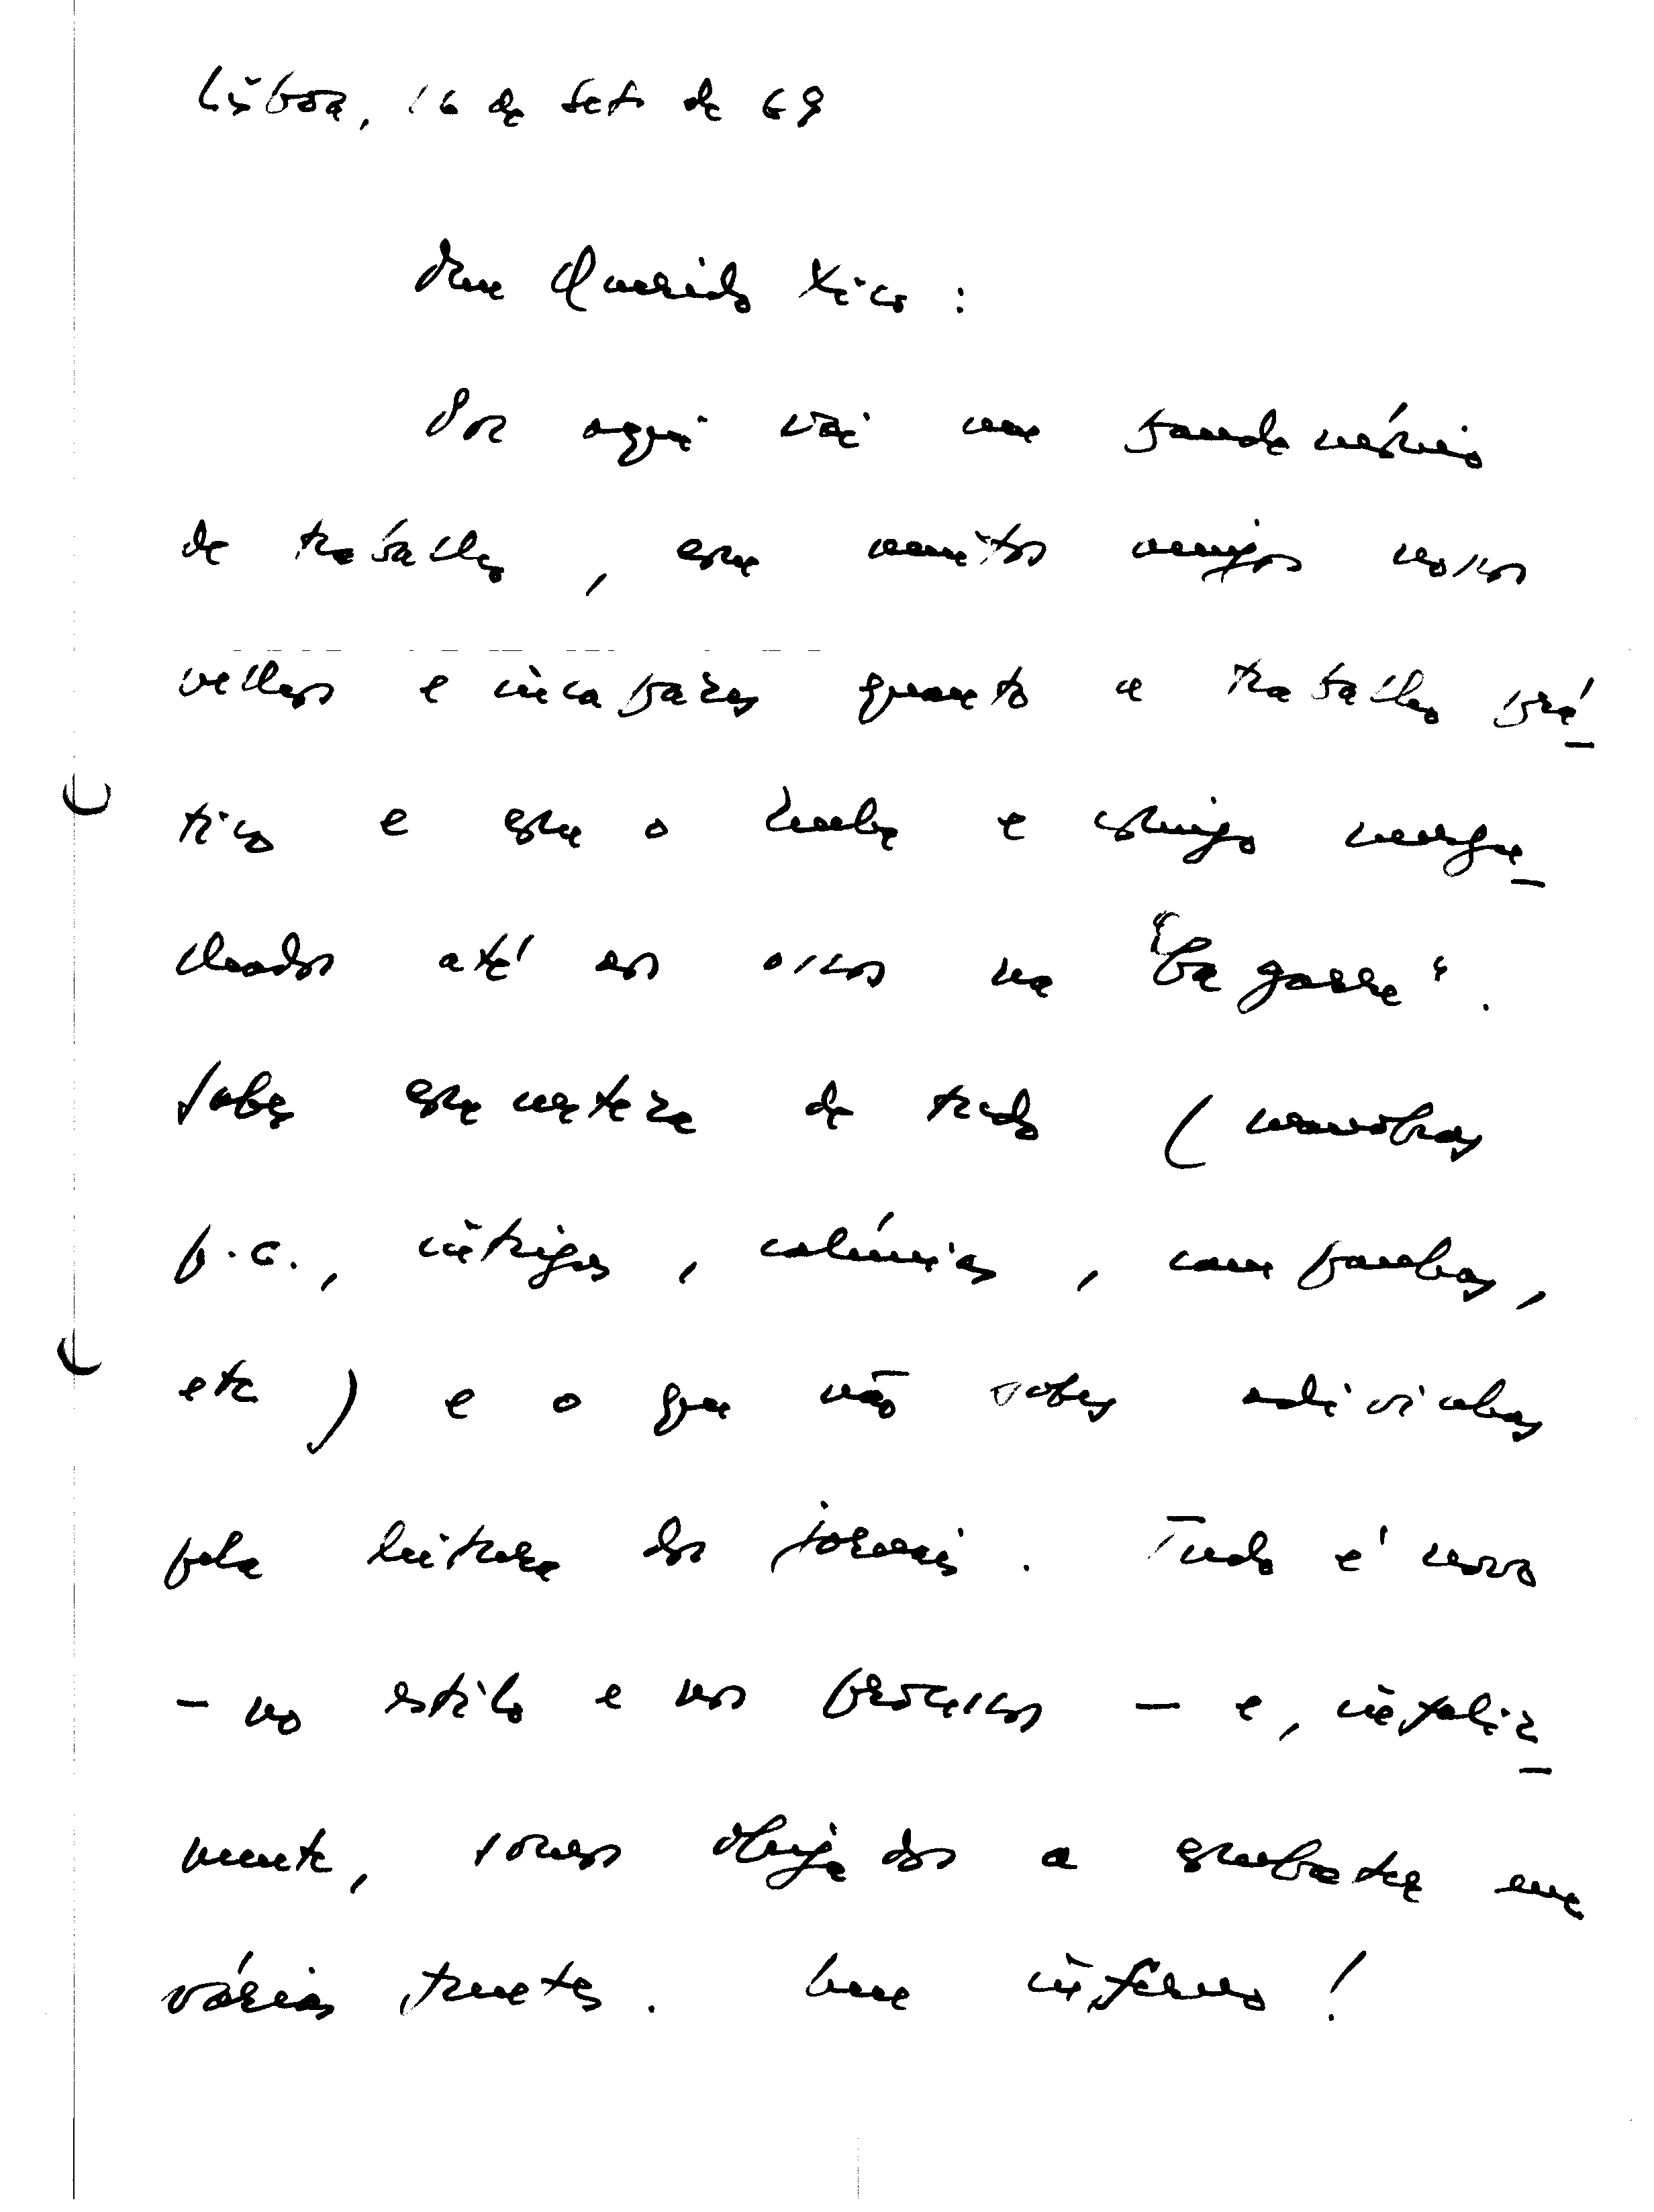 Lisboa, 16 de Set. de 69
Meu Querido Xico:
Por aqui vai um pandemónio
de trabalho, com muitos amigos nossos
velhos e incapazes quanto a trabalho prá-
tico e com o Zenha e comigo mergu-
lhados até aos ossos na "bagarre".
Sabes com certeza de tudo (manobras
p.c., intrigas, calúnias, campanhas,
etc) e o que não sabes adivinhas
pela leitura dos jornais. Tudo é novo
- no estilo e nos processos - e, infeliz-
mente, somos obrigados a combater em
várias frentes. Um inferno!